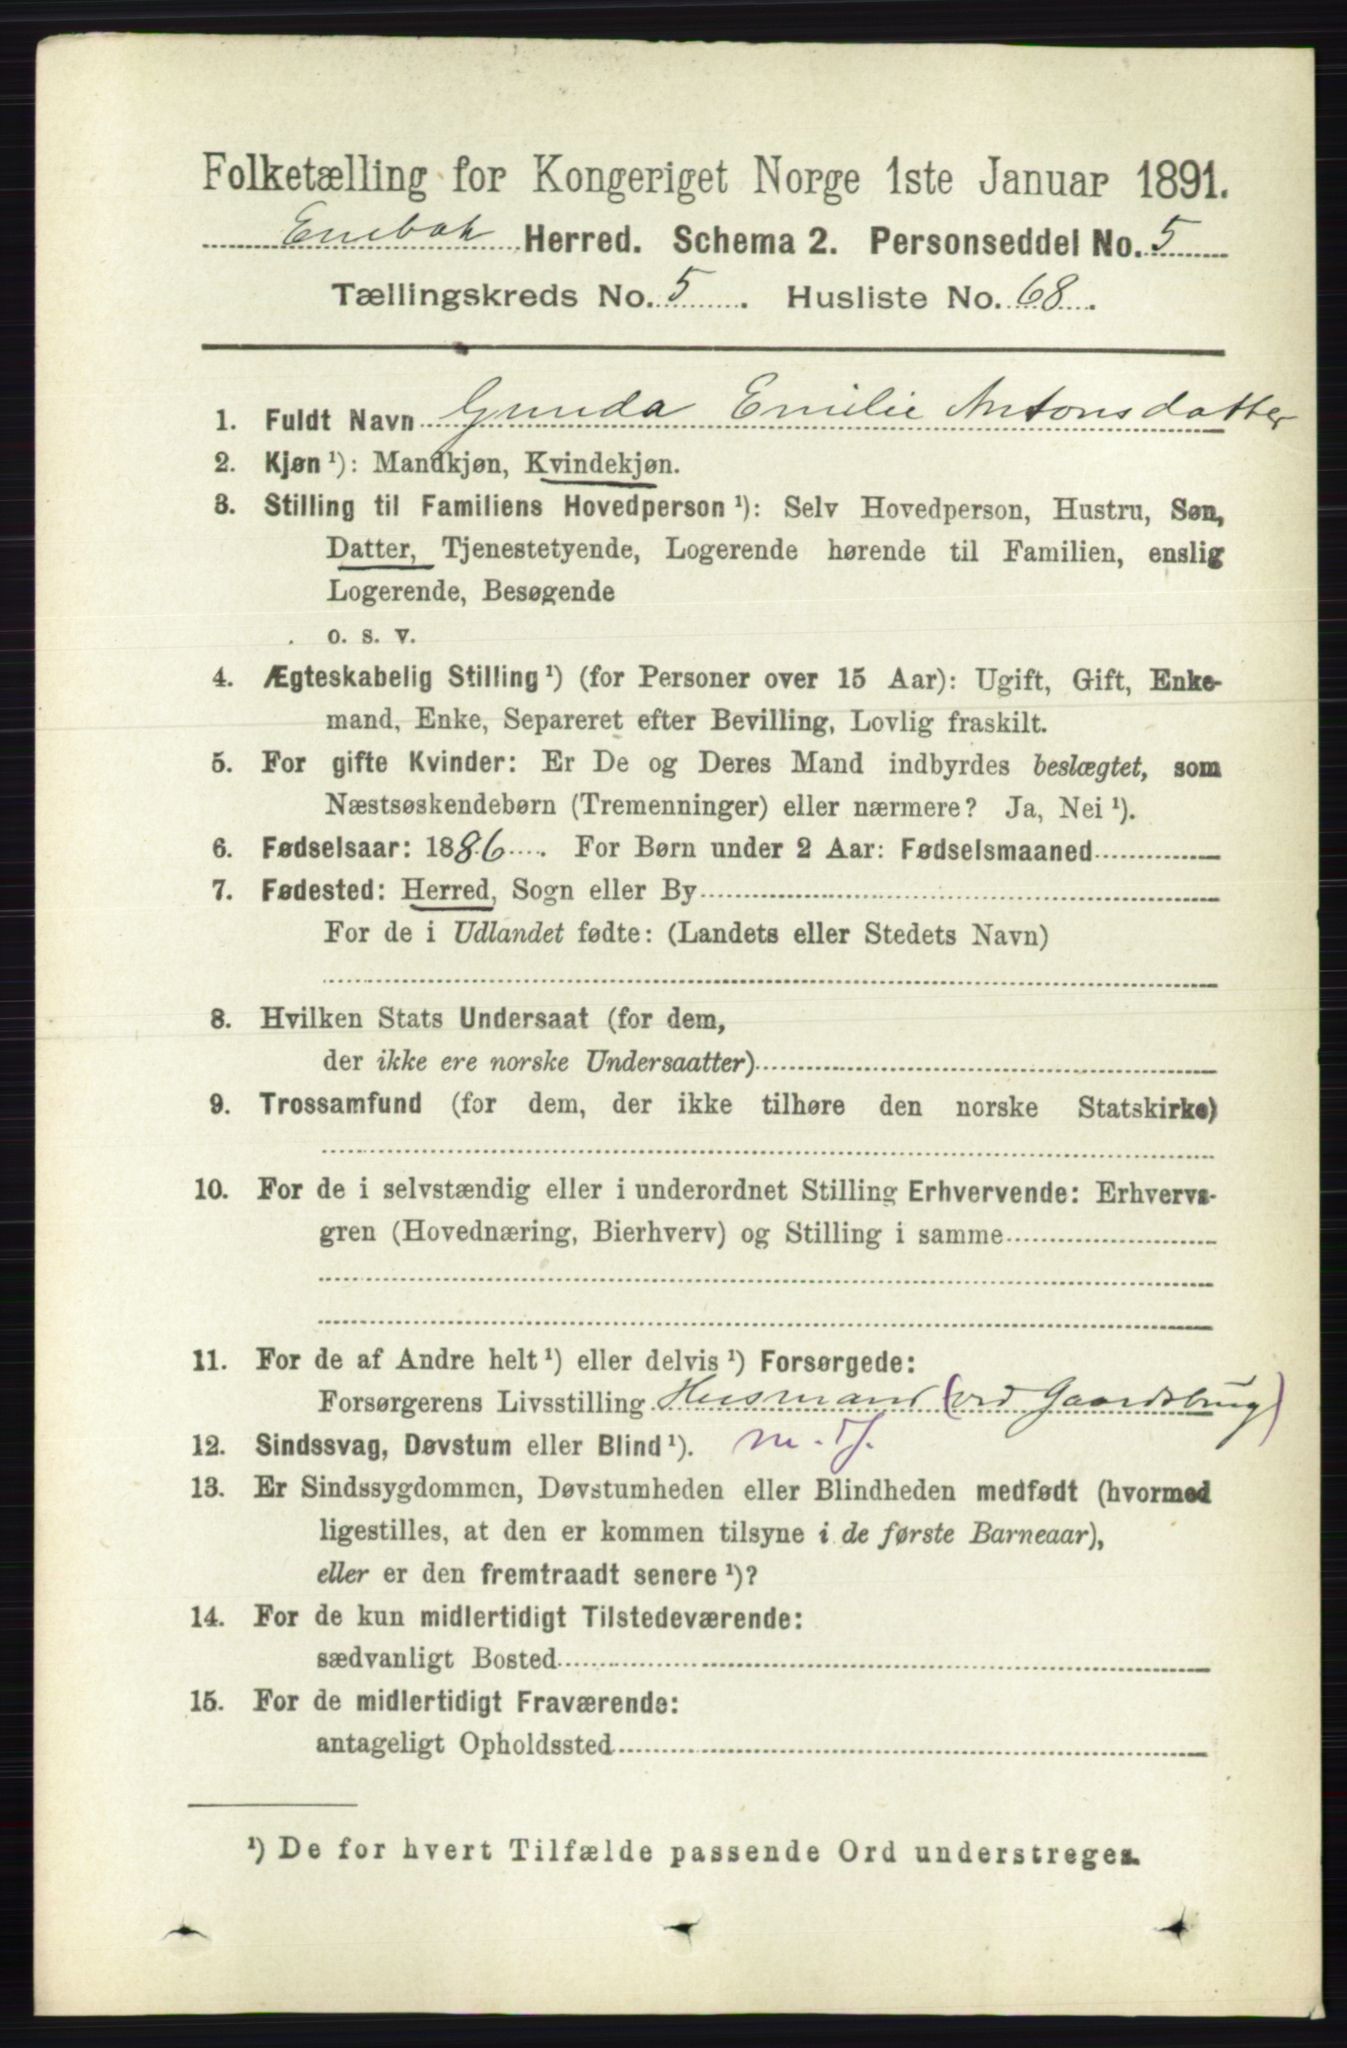 Folketælling for Kongeriget Norge 1ste Januar 1891.
Enebak Herred. Schema 2. Personseddel No. 5
Tællingskreds No. 5. Husliste No. 68.
1. Fuldt Navn Gunda Emilie Antonsdatter
2. Kjøn ¹): Mandkjøn, Kvindekjøn.
3. Stilling til Familiens Hovedperson ¹): Selv Hovedperson, Hustru, Søn,
Datter, Tjenestetyende, Logerende hørende til Familien, enslig
Logerende, Besøgende
o. s. v.
4. Ægteskabelig Stilling ¹) (for Personer over 15 Aar): Ugift, Gift, Enke-
mand, Enke, Separeret efter Bevilling, Lovlig fraskilt.
5. For gifte Kvinder: Er De og Deres Mand indbyrdes beslægtet, som
Næstsøskendebørn (Tremenninger) eller nærmere? Ja, Nei ¹).
6. Fødselsaar: 1886. For Børn under 2 Aar: Fødselsmaaned
7. Fødested: Herred, Sogn eller By
For de i Udlandet fødte: (Landets eller Stedets Navn)
8. Hvilken Stats Undersaat (for dem,
der ikke ere norske Undersaatter)
9. Trossamfund (for dem, der ikke tilhøre den norske Statskirke)
10. For de i selvstændig eller i underordnet Stilling Erhvervende: Erhvervs-
gren (Hovednæring, Bierhverv) og Stilling i samme
11. For de af Andre helt ¹) eller delvis ¹) Forsørgede:
Forsørgerens Livsstilling Husmand (ved Gaardsbrug)
12. Sindssvag, Døvstum eller Blind ¹). m. J.
13. Er Sindssygdommen, Døvstumheden eller Blindheden medfødt (hvormed
ligestilles, at den er kommen tilsyne i de første Barneaar),
eller er den fremtraadt senere ¹)?
14. For de kun midlertidigt Tilstedeværende:
sædvanligt Bosted
15. For de midlertidigt Fraværende:
antageligt Opholdssted
¹) De for hvert Tilfælde passende Ord understreges.